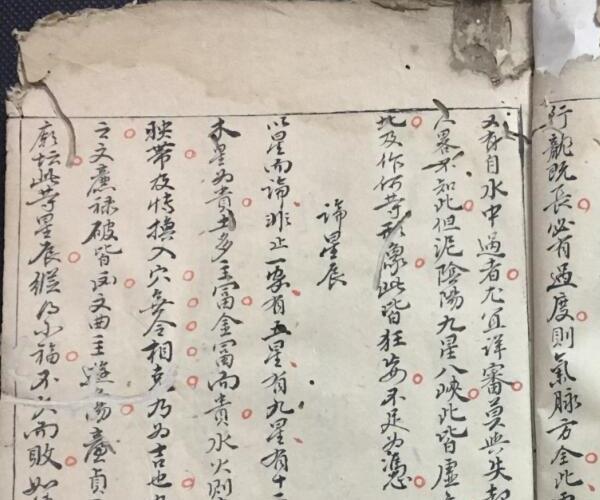 行龍既長必有過度則氣脉方全此
又有自水中過者尤宜詳審莫與失
人畧不知此但泥陰陽九星八峽此皆虛
此及作何等形像此皆狂妄不足為憑
論星辰
以星而論非止一家有五星有九星有十二
木星為貴土多主富金富而貴水火則
映帶及情換入穴無令相克乃為吉也
之文廉祿破皆凶文曲主瘟
廟坛此等星辰縱乃小福不久而敗如